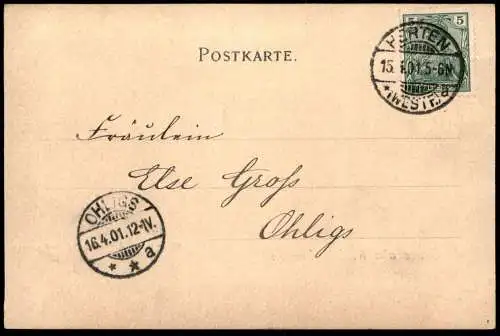 5 5
HERTEN
15.4.01.5-6N.
*(WESTF.)a
POSTKARTE.
Fräulein
Else Groß
Ohligs
OHLIGS
16.4.01.12-1V.
* * a